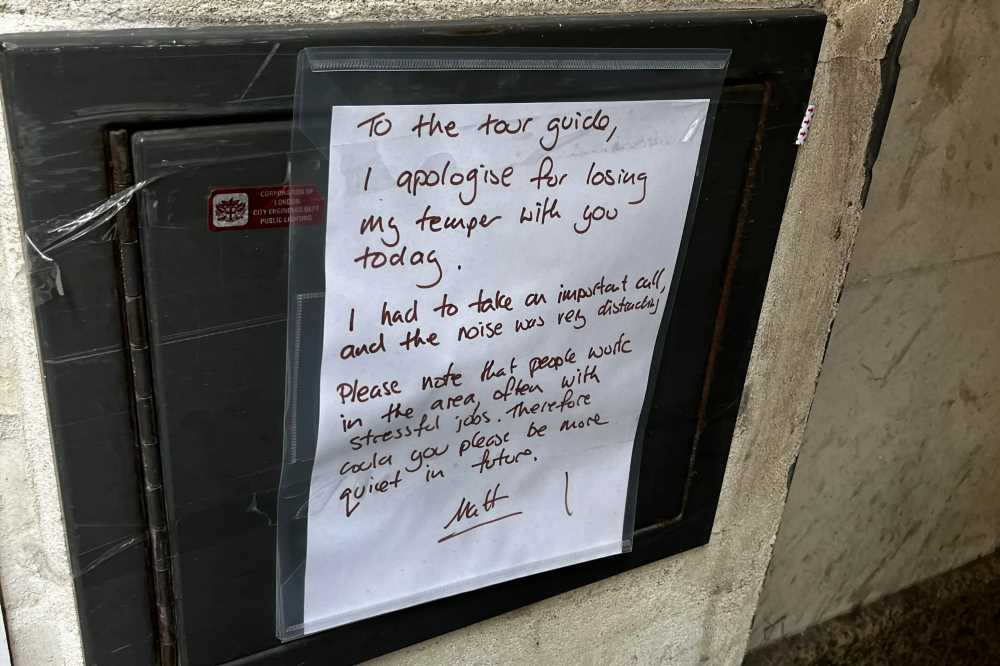 To the tour guide,
I apologise for losing
my temper with you
today.
I had to take an important call,
and the noise was very distracting
Please note that people work
in the area, often with
stressful jobs. Therefore
could you please be more
quiet in future.
Matt
CORPORATION OF
LONDON
CITY ENGINEERS DEPT
PUBLIC LIGHTING